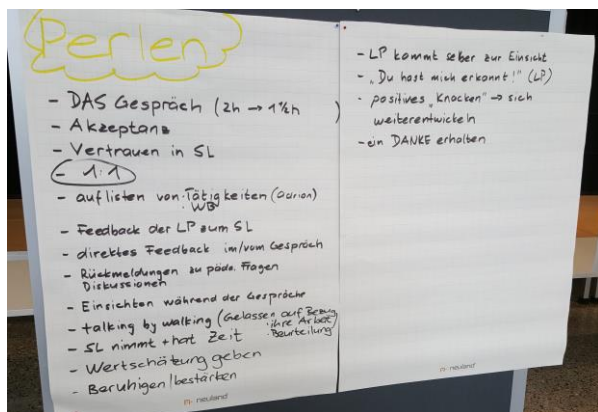 Perlen
- DAS Gespräch (2h → 1½h )
- Akzeptanz
- Vertrauen in SL
- 1:1
- auflisten von · Tätigkeiten (Adrian)
· WB
- Feedback der LP zum SL
- direktes Feedback im/vom Gespräch
- Rückmeldungen zu päda. Fragen
Diskussionen
- Einsichten während der Gespräche
- talking by walking (Gelassen auf Bezug
· ihre Arbeit)
- SL nimmt + hat Zeit · Beurteilung
- Wertschätzung geben
- Beruhigen/bestärken
neuland
- LP kommt selber zur Einsicht
- "Du hast mich erkannt!" (LP)
- positives "Knacken" → sich
weiterentwickeln
- ein DANKE erhalten
neuland